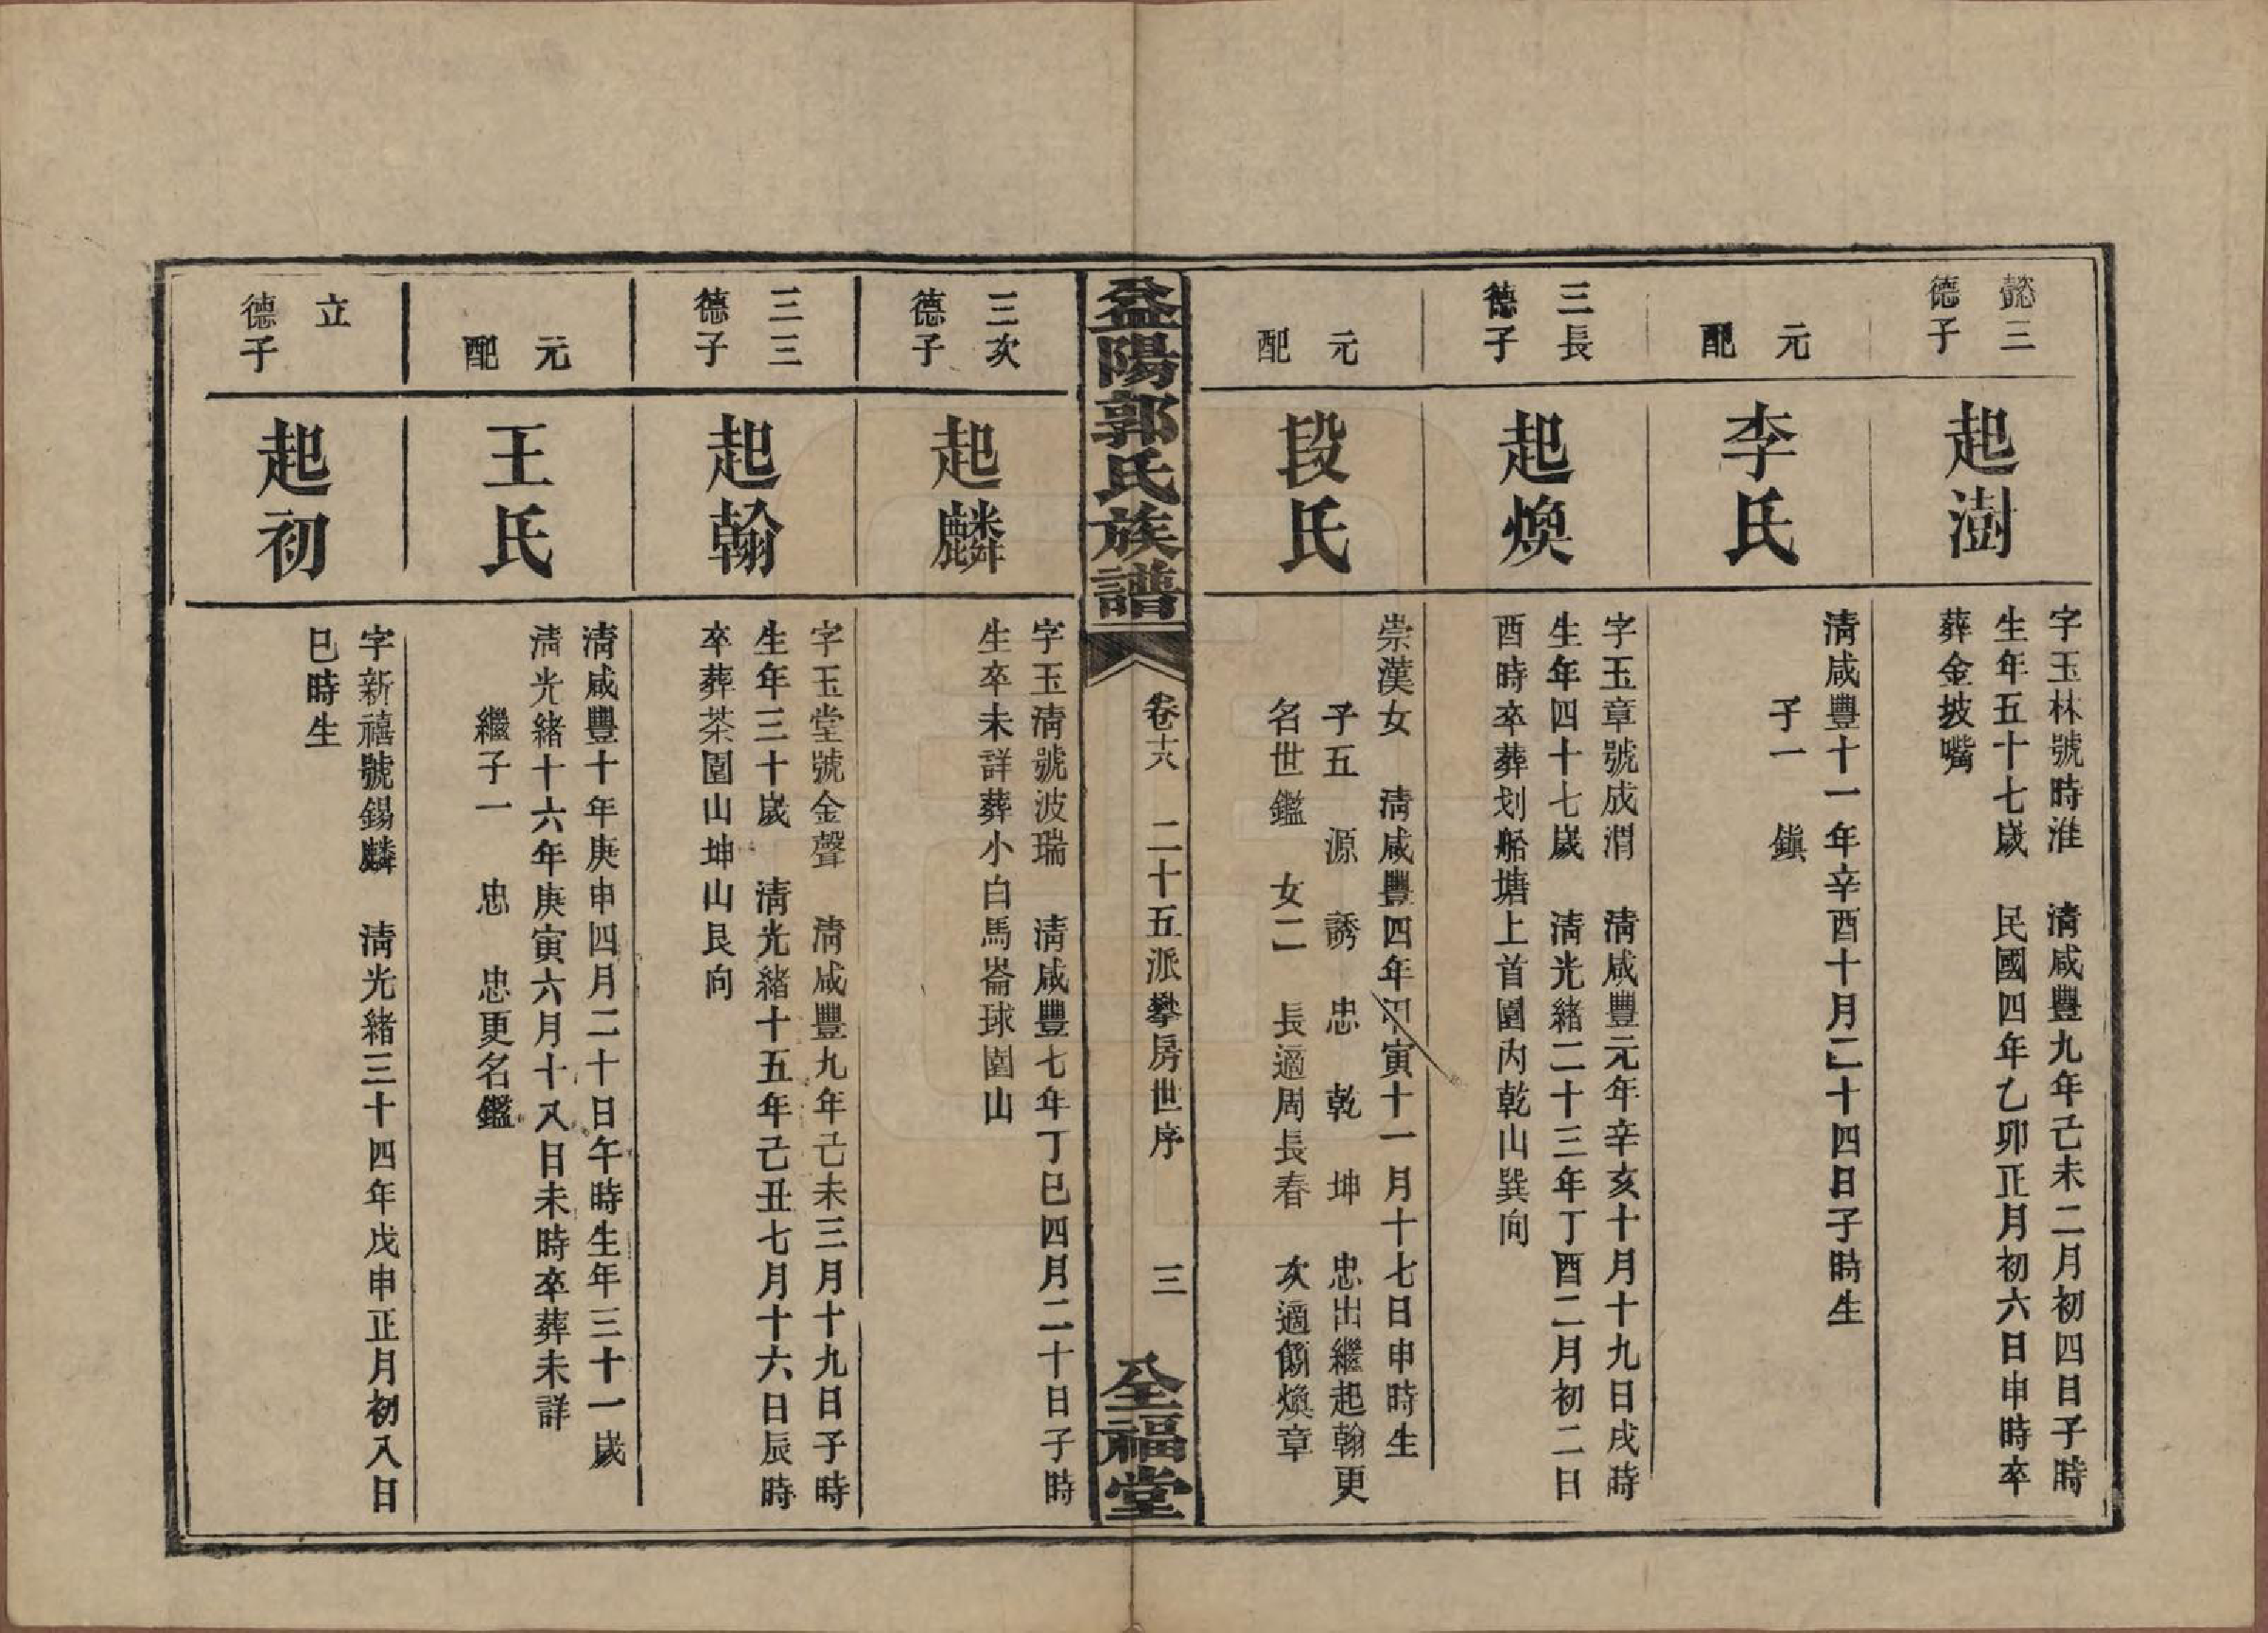 懿德三子
起澍
字玉林號時淮　清咸豐九年己未二月初四日子時
生年五十七歲　民國四年乙卯正月初六日申時卒
葬金坡嘴
元配
李氏
清咸豐十一年辛酉十月二十四日子時生
子一　鎮
三德長子
起煥
字玉章號成渭　清咸豐元年辛亥十月十九日戌時
生年四十七歲　清光緒二十三年丁酉二月初二日
酉時卒葬划船塘上首園內乾山巽向
元配
段氏
崇漢女　清咸豐四年甲寅十一月十七日申時生
子五　源　誘　忠　乾　坤　忠出繼起翰更
名世鑑　女二　長適周長春　次適
煥章
益陽郭氏族譜
卷十六　二十五派攀房世序　三
全福堂
三德次子
起麟
字玉清號波瑞　清咸豐七年丁巳四月二十日子時
生卒未詳葬小白馬崙球園山
三德三子
起翰
字玉堂號金聲　清咸豐九年己未三月十九日子時
生年三十歲　清光緒十五年己丑七月十六日辰時
卒葬茶園山坤山艮向
元配
王氏
清咸豐十年庚申四月二十日午時生年三十一歲
清光緒十六年庚寅六月十八日未時卒葬未詳
繼子一　忠　忠更名鑑
立德子
起初
字新禧號錫麟　清光緒三十四年戊申正月初八日
巳時生